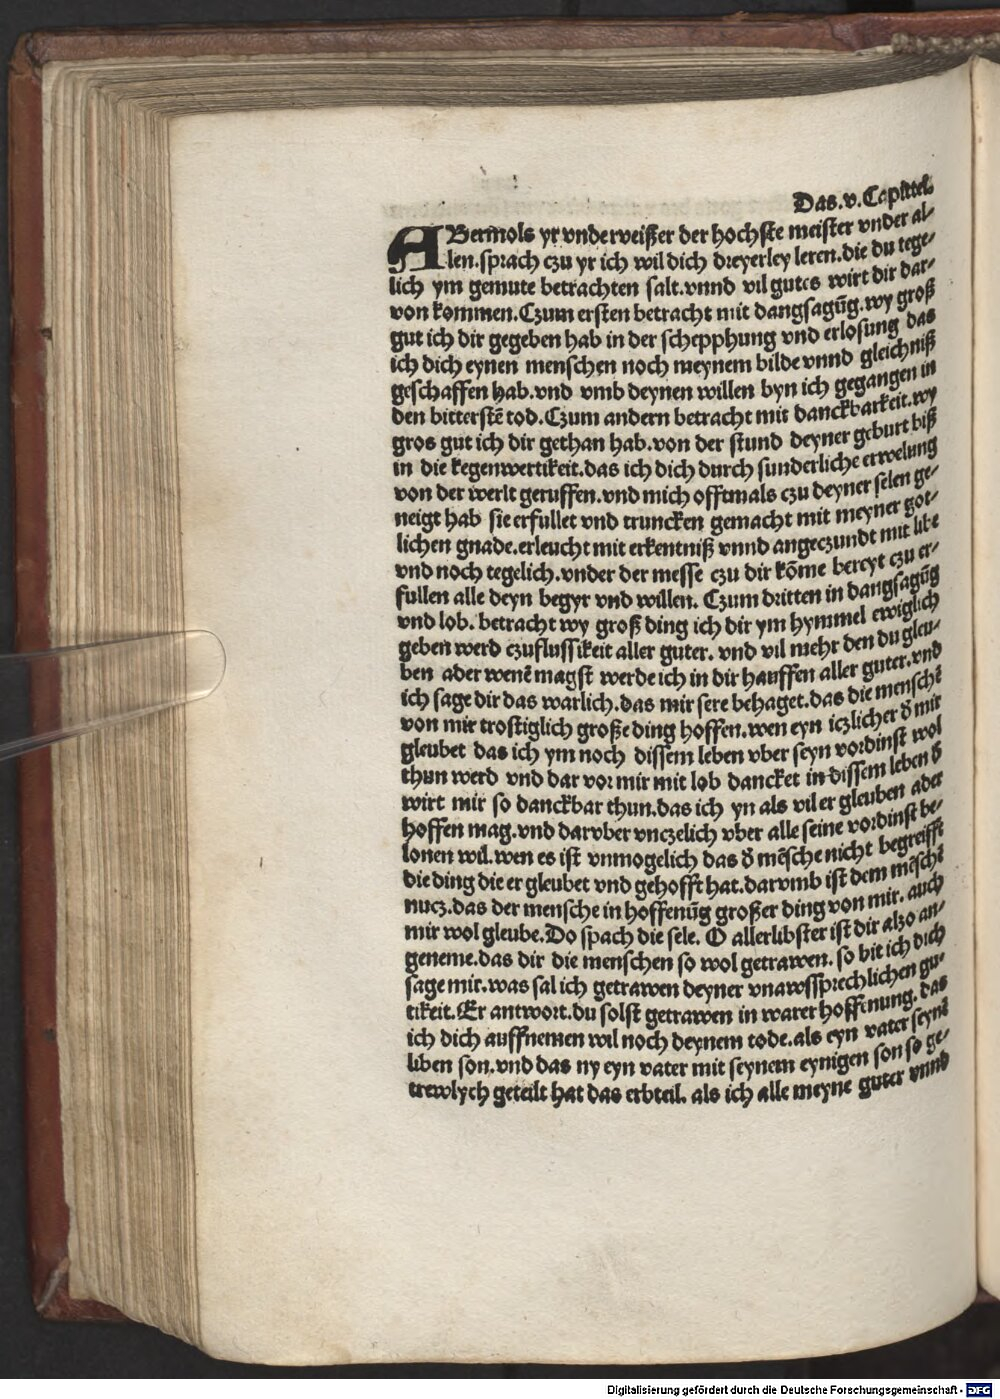 Das.v.Capittel.
ABermols yr vnderweißer der hochste meister vnder al-
len.sprach czu yr ich wil dich dreyerley leren.die du tege-
lich ym gemute betrachten salt.vnnd vil gutes wirt dir dar-
von kommen.Czum ersten betracht mit dangsagūg.wy groß
gut ich dir gegeben hab in der schepphung vnd erlosung das
ich dich eynen menschen noch meynem bilde vnnd gleichniß
geschaffen hab.vnd vmb deynen willen byn ich gegangen in
den bitterstē tod.Czum andern betracht mit danckbarkeit.wy
gros gut ich dir gethan hab.von der stund deyner geburt biß
in die kegenwertikeit.das ich dich durch sunderliche erwelung
von der werlt geruffen.vnd mich offtmals czu deyner selen ge-
neigt hab sie erfullet vnd truncken gemacht mit meyner got-
lichen gnade.erleucht mit erkentniß vnnd angeczundt mit libe
vnd noch tegelich.vnder der messe czu dir kōme bereyt czu er-
fullen alle deyn begyr vnd willen. Czum dritten in dangsagūg
vnd lob. betracht wy groß ding ich dir ym hymmel ewiglich
geben werd czuflussikeit aller guter. vnd vil mehr den du gleu-
ben ader wenē magst werde ich in dir hauffen aller guter.vnd
ich sage dir das warlich.das mir sere behaget.das die menschē
von mir trostiglich große ding hoffen.wen eyn iczlicher d̄ mir
gleubet das ich ym noch dissem leben vber seyn vordinst wol
thun werd vnd dar vor mir mit lob dancket in dissem leben d̄
wirt mir so danckbar thun.das ich yn als vil er gleuben ader
hoffen mag.vnd darvber vnczelich vber alle seine vordinst be-
lonen wil.wen es ist vnmogelich das d̄ mēsche nicht begreifft
die ding die er gleubet vnd gehofft hat.darvmb ist dem mēschē
nucz.das der mensche in hoffenūg großer ding von mir. auch
mir wol gleube.Do spach die sele. O allerlibster ist dir alzo an-
geneme.das dir die menschen so wol getrawen. so bit ich dich
sage mir.was sal ich getrawen deyner vnawssprechlichen gu-
tikeit.Er antwort.du solst getrawen in warer hoffenung. das
ich dich auffnemen wil noch deynem tode.als eyn vater seynē
liben son.vnd das ny eyn vater mit seynem eynigen son so ge-
trewlych geteilt hat das erbteil. als ich alle meyne guter vnnd
Digitalisierung gefördert durch die Deutsche Forschungsgemeinschaft - DFG